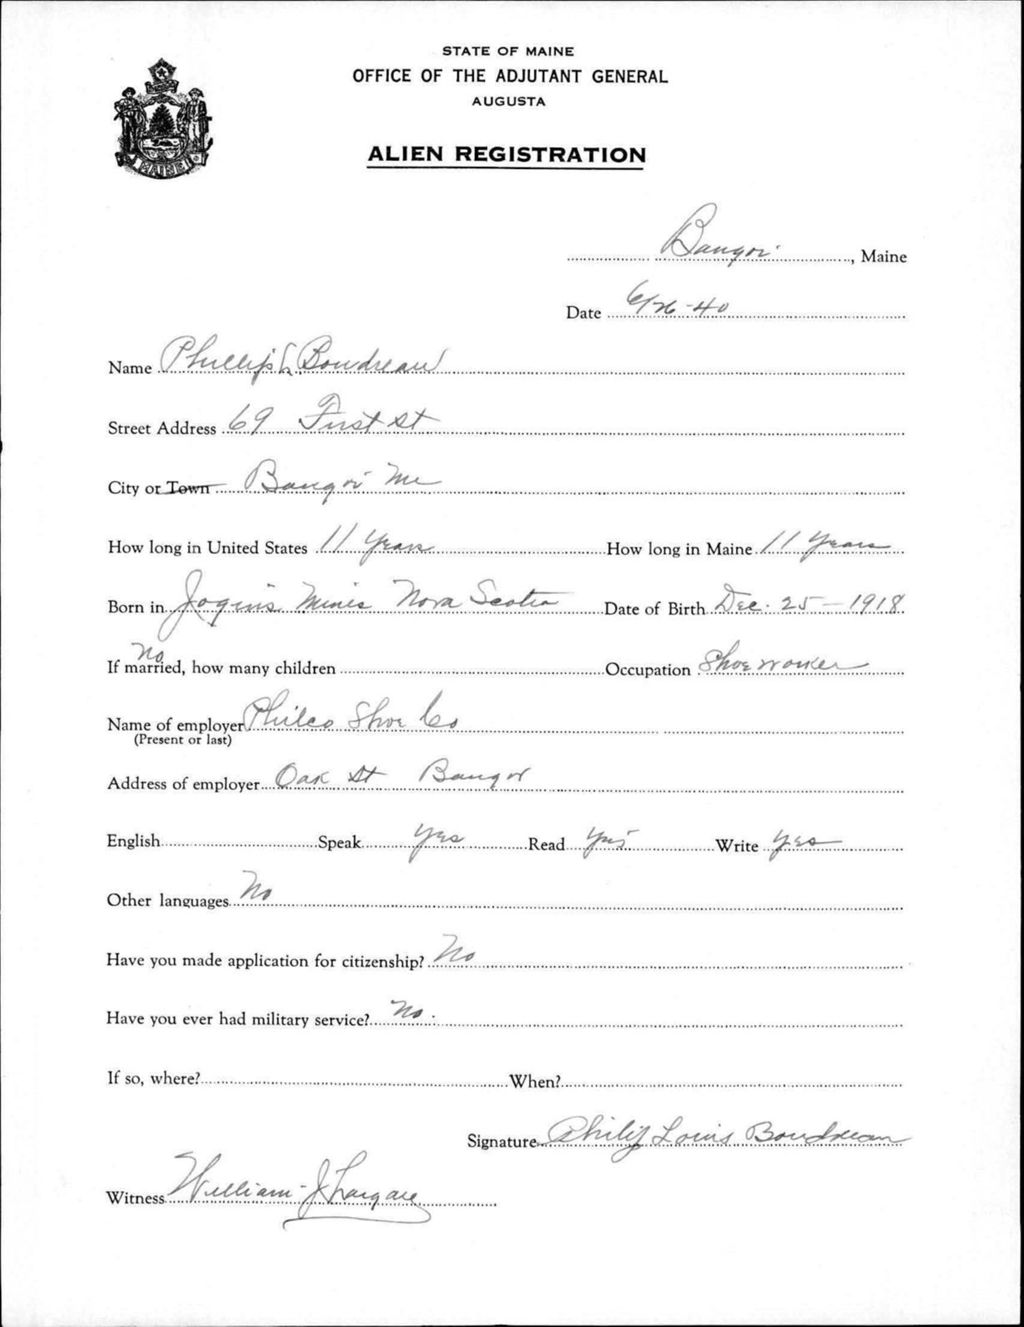 STATE OF MAINE
OFFICE OF THE ADJUTANT GENERAL
AUGUSTA
ALIEN REGISTRATION
MAINE
Bangor, Maine
Date 6/26-40
Name Phillip L Boudreau
Street Address 69 First St
City or Town Bangor Me
How long in United States 11 Years How long in Maine 11 Years
Born in Jogins Mines Nova Scotia Date of Birth Dec. 25-1918
No
If married, how many children Occupation Shoe worker
Name of employer Philco Shoe Co
(Present or last)
Address of employer Oak St Bangor
English Speak Yes Read Yes Write Yes
Other languages No
Have you made application for citizenship? No
Have you ever had military service? No.
If so, where? When?
Signature Philip Louis Boudreau
Witness William J